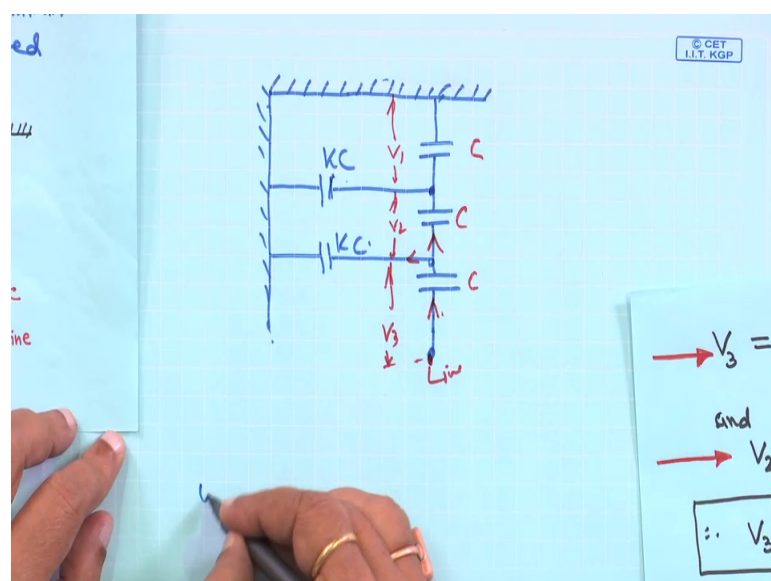 ed
© CET
I.I.T. KGP
V₁
C
KC
V₂
C
KC.
C
V₃
Line
ine
V₃ =
and
V₂
∴ V₃